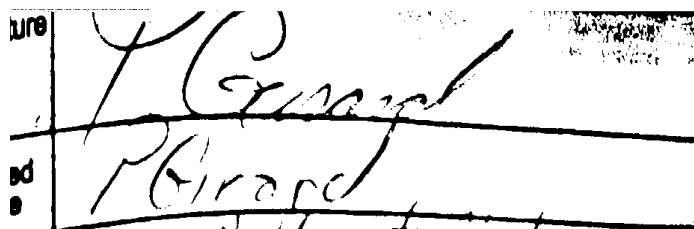 ture P. Girard
ed P. Girard
e